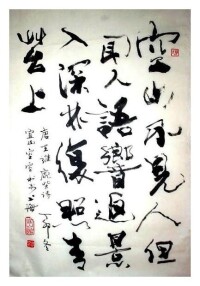 空山不見人但
聞人語響返景
入深林復照青
苔上
唐王維鹿柴詩 丁卯冬